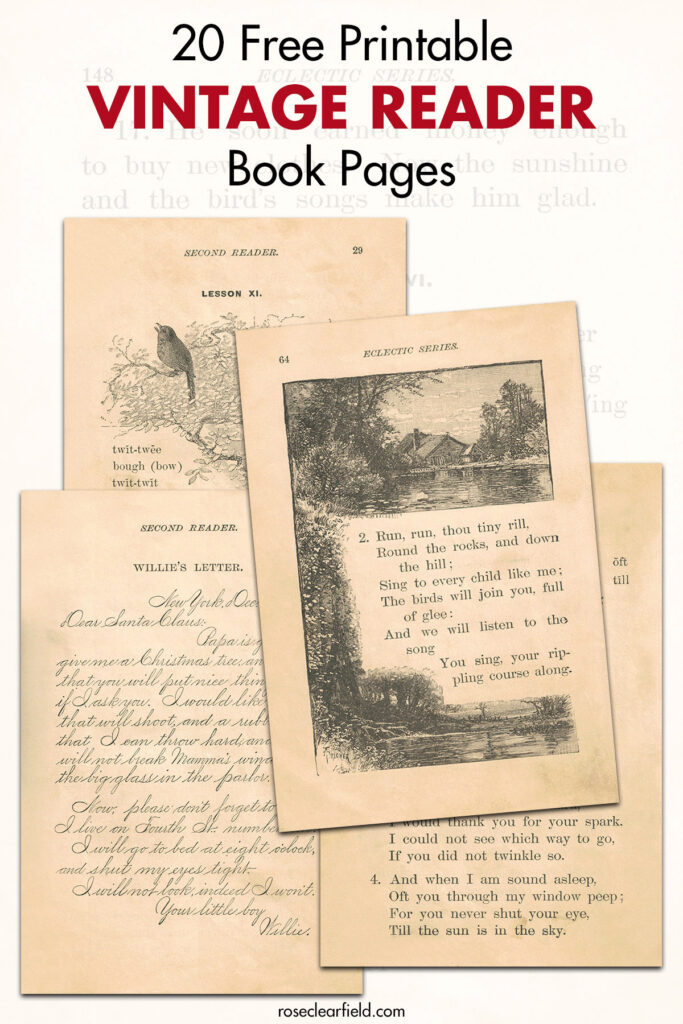 20 Free Printable
VINTAGE READER
Book Pages
148 ECLECTIC SERIES.
17. He soon earned money enough
to buy new clothes. Now the sunshine
and the bird's songs make him glad.
SECOND READER. 29
LESSON XI.
twĭt-twēe
bough (bow)
twĭt-twĭt
64 ECLECTIC SERIES.
2. Run, run, thou tiny rill,
Round the rocks, and down
the hill;
Sing to every child like me;
The birds will join you, full
of glee:
And we will listen to the
song
You sing, your rip-
pling course along.
SECOND READER.
WILLIE'S LETTER.
New York, Dec.
Dear Santa Claus:
Papa is g
give me a Christmas tree, an
that you will put nice thin
if I ask you. I would like
that will shoot, and a rub
that I can throw hard, and
will not break Mamma's wind
the big glass in the parlor.
Now, please don't forget to
I live on Fourth St. numbe
I will go to bed at eight o'clock,
and shut my eyes tight.
I will not look, indeed I won't.
Your little boy,
Willie.
ŏft
tĭll
I would thank you for your spark.
I could not see which way to go,
If you did not twinkle so.
4. And when I am sound asleep,
Oft you through my window peep;
For you never shut your eye,
Till the sun is in the sky.
roseclearfield.com